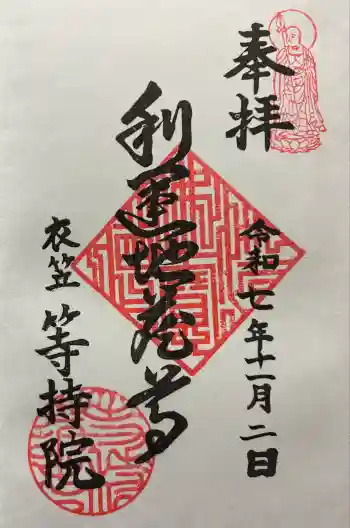 奉拝
令和七年十一月二日
利運地蔵尊
衣笠
等持院